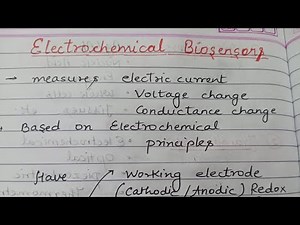 Electrochemical Biosensors
→ measures electric current
· Voltage change
· Conductance change
• Based on Electrochemical
principles
Have → Working electrode
(Cathodic/Anodic) Redox